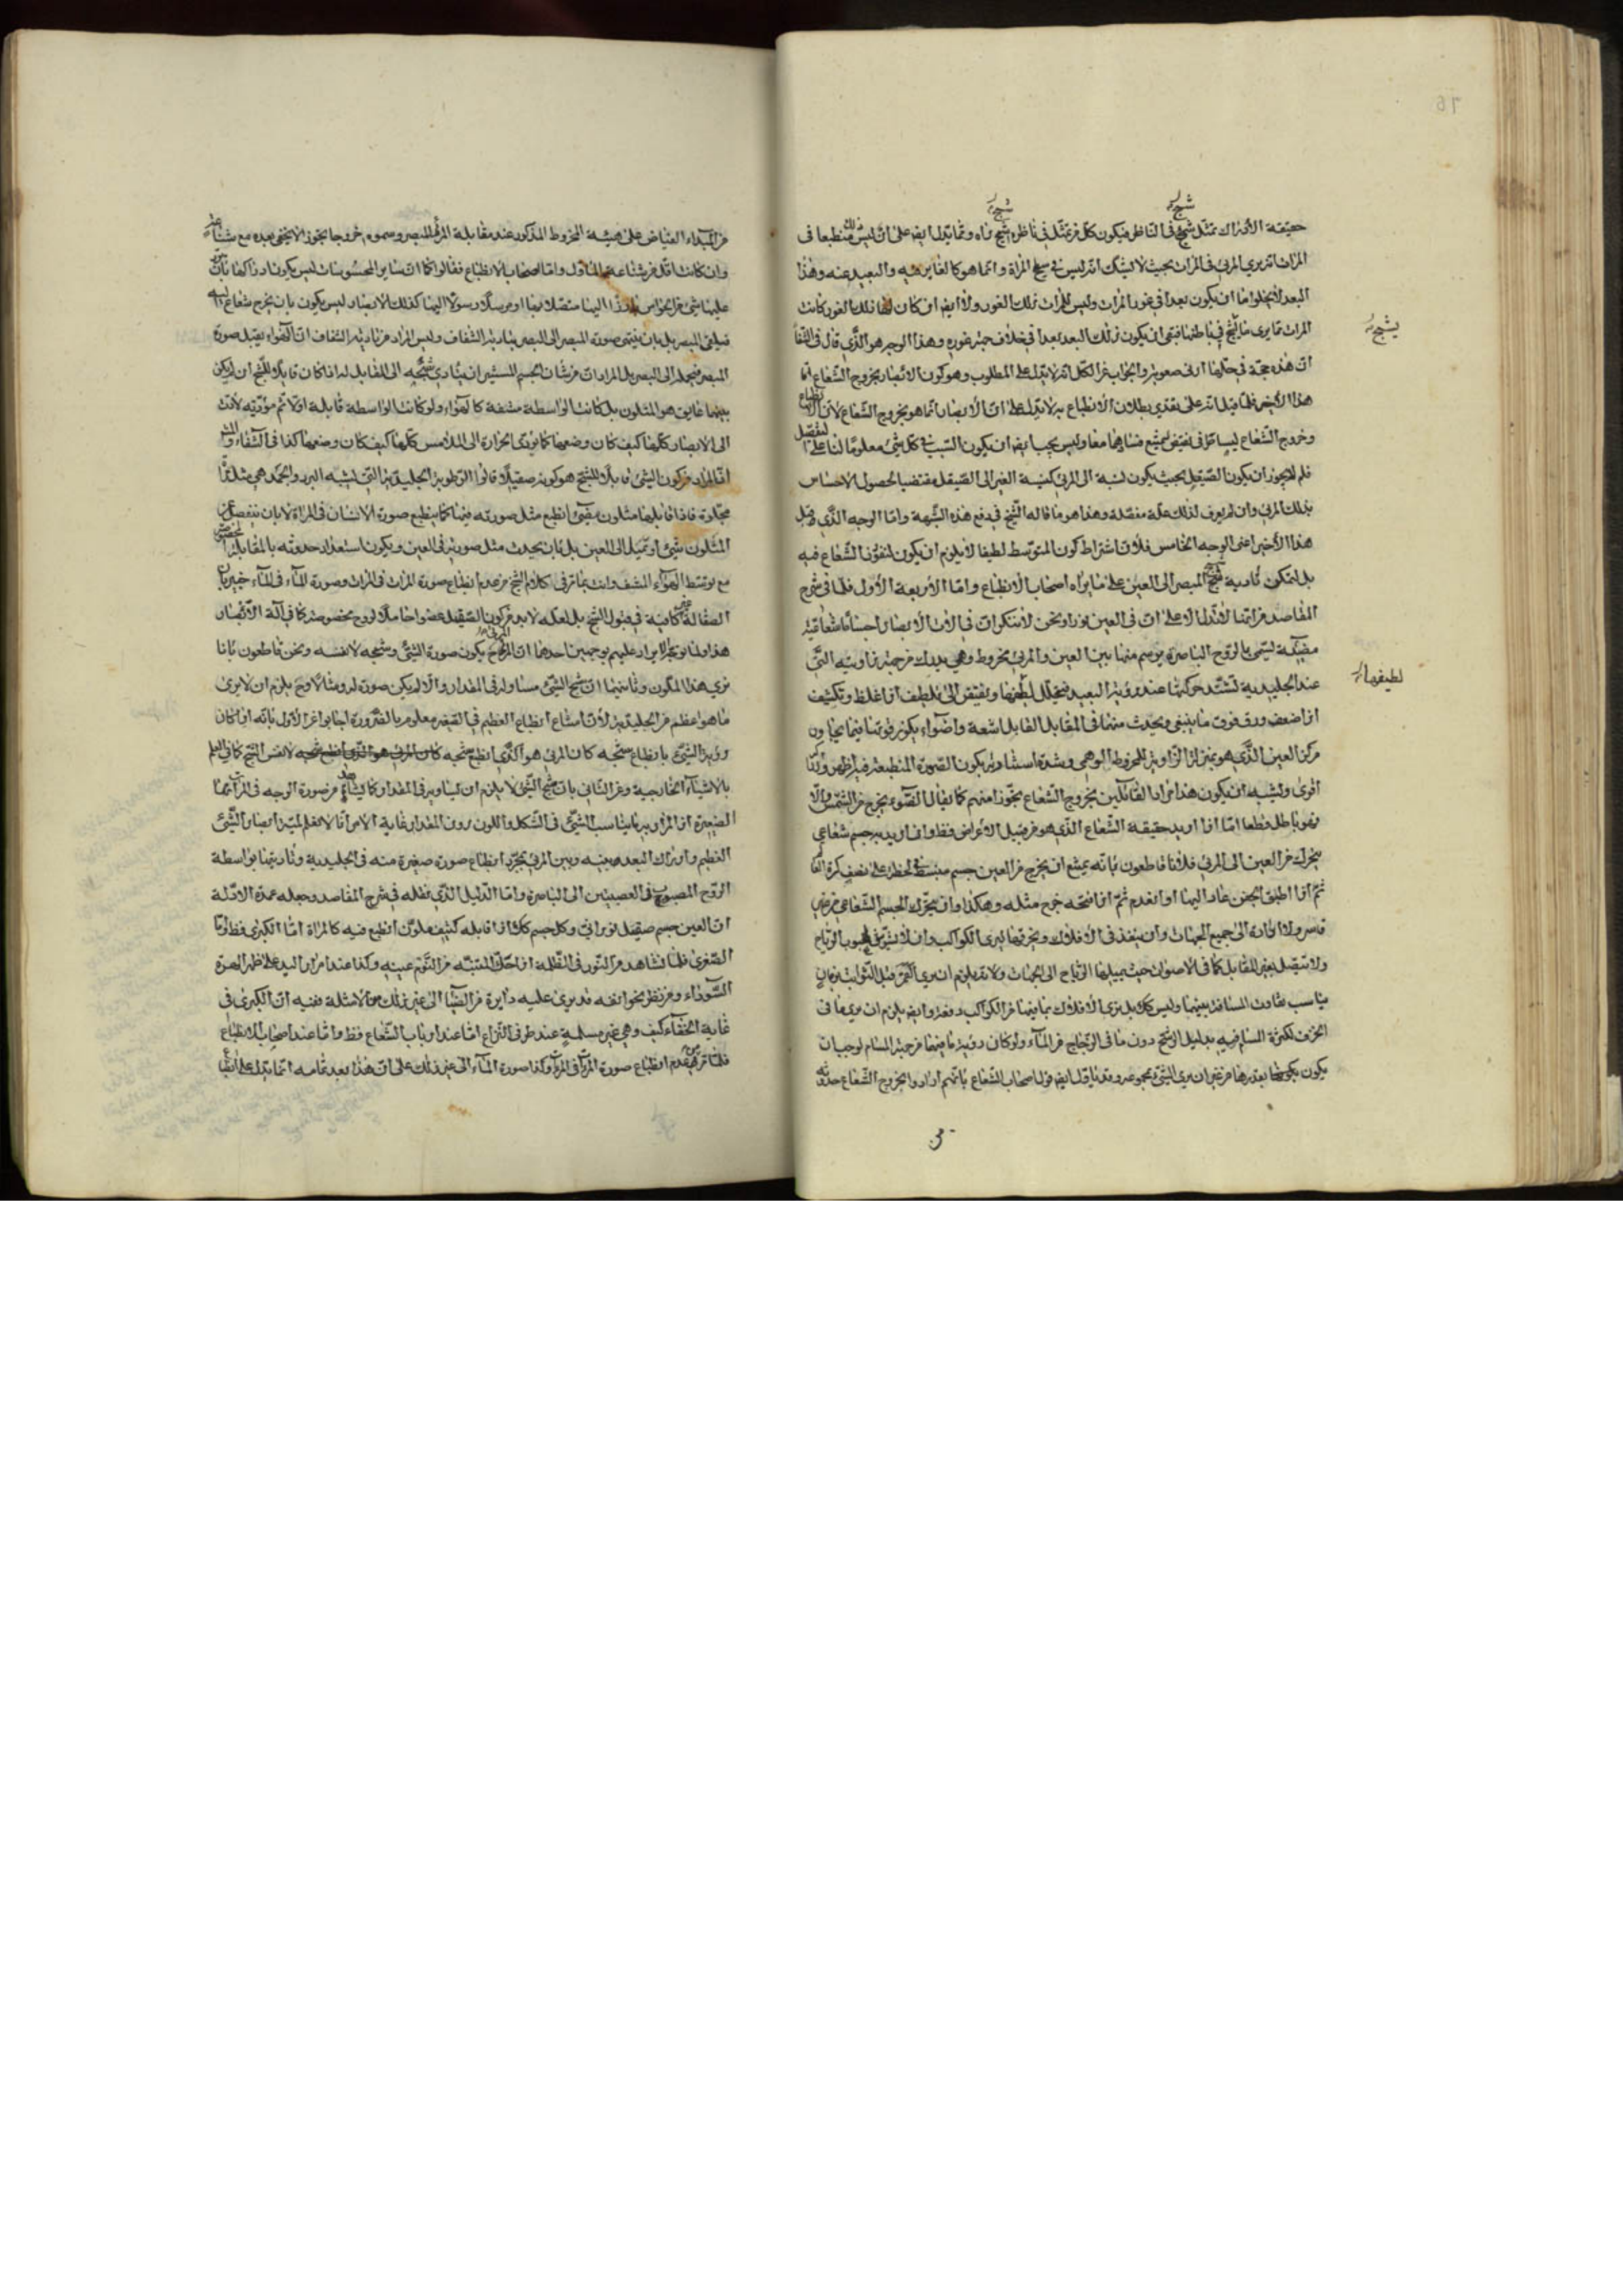 شبح
شبح
حقيقة الادراك تمثل شبح في الناظر فيكون كل من تمثل في ناظره شبح يراه ومما يدل ايضا على انه ليس منطبعا في
المرات انه يرى المرئي في المرات بحيث لا يشك انه ليس في سطح المراة وانما هو كالغاير فيه والبعيد عنه وهذا
البعد لا يخلو اما ان يكون بعدا في غور المرات وليس للمرات ذلك الغور ولا ايضا ان كان لها ذلك الغور كانت
المرات مما يرى ما يشبح في باطنها فبقى ان يكون ذلك البعد بعدا في خلاف جهة غوره وهذا الوجه هو الذي قال في الشفا
ان هذه حجة في حلها ادنى صعوبة والجواب عن الكل انه لا يدل على المطلوب وهو كون الابصار بخروج الشعاع اما
هذا الاخير فلما قيل انه على تقدير بطلان الانطباع لا يدل على ان الابصار انما هو بخروج الشعاع لان الانطباع
وخروج الشعاع ليسا طرفي نقيض ليمتنع فسادهما معا وليس يجب ايضا ان يكون السبب في كل شيء معلوما لنا على التفصيل
فلم لا يجوز ان يكون الصقيل بحيث يكون نسبة الى المرئي كنسبة العين الى الصقيل مقتضيا لحصول الاحساس
بذلك المرئي وان لم يعرف لذلك علة مفصلة وهذا هو ما قاله الشيخ في دفع هذه الشبهة واما الوجه الذي قبل
هذا الاخير اعني الوجه الخامس فلان اشتراط كون المتوسط لطيفا لا يلزم ان يكون لنفوذ الشعاع فيه
بل لتمكن تادية شبح المبصر الى العين على ما يراه اصحاب الانطباع واما الاربعة الاول فلما في شرح
المقاصد من انها لا تدل الا على ان في العين نورا ونحن لا ننكر ان في الات الابصار اجساما شعاعية
مضيئة تسمى بالروح الباصرة يرتسم منها بين العين والمرئي مخروط وهمي يدرك من جهة زاويته التي
عند الجليدية تشتد حركتها عند رؤية البعيد فيتحلل لطيفها ويفتقر الى تلطيف اذا غلظ وتكثيف
اذا ضعف ورق فوق ما ينبغي ويحدث منها في المقابل القابل اشعة واضواء يكون قوتها فيما يحاذي
مركز العين الذي هو بمنزلة الزاوية للمخروط الوهمي وشدة استنارته يكون الصورة المنطبعة فيه اظهر وادراكه
اقوى ويشبه ان يكون هذا مراد القائلين بخروج الشعاع تجوزا منهم كما يقال الضوء يخرج من الشمس والا
فهو باطل قطعا اما اذا اريد حقيقة الشعاع الذي هو من قبيل الاعراض فظ وان اريد به جسم شعاعي
يتحرك من العين الى المرئي فلانا قاطعون بانه يمتنع ان يخرج من العين جسم ينبسط في لحظة على نصف كرة العالم
ثم اذا اطبق الجفن عاد اليها او انعدم ثم اذا فتحه خرج مثله وهكذا وان يتحرك الجسم الشعاعي من غير
قاسر ولا ارادة الى جميع الجهات وان ينفذ في الافلاك ويخرقها ليرى الكواكب وان لا يتشوش بهبوب الرياح
ولا يتصل بغير المقابل كما في الاصوات حيث يميلها الرياح الى الجهات ولانه يلزم ان يرى القمر قبل الثوابت بزمان
يناسب تفاوت المسافة بينهما وليس كك بل نرى الافلاك بما فيها من الكواكب دفعة وايضا يلزم ان يرى ما في
الخزف لكثرة المسام فيه بدليل الرشح دون ما في الزجاج من الماء ولو كان رؤية ما فيها من جهة المسام لوجب ان
يكون بقدرها من غير ان يرى الشيء بمجموعه وقد ياول ايضا قول اصحاب الشعاع بانهم ارادوا بخروج الشعاع حدوثه
يشبح
لطيفها
من المبداء الفياض على هيئة المخروط المذكور عند مقابلة المرئي للمبصر وسموه خروجا تجوزا لا يخفى بعده مع شناعته
وان كانت اقل من شناعة الاول واما اصحاب الانطباع فقالوا كما ان ساير المحسوسات ليس يكون ادراكها بان
عليها شيء من الحواس بارزا اليها متصلا بها او مرسلا رسولا اليها كذلك الابصار ليس يكون بان يخرج شعاع البتة
فيلقى المبصر بل بان ينتهى صورة المبصر الى البصر بتادية الشفاف وليس المراد من تادية الشفاف ان الهواء يقبل صورة
المبصر فيحملها الى البصر بل المراد ان من شان الجسم المستنير ان يتادى شبحه الى المقابل له اذا كان قابلا للشبح ان لم يكن
بينهما عايق هو المتلون بل كانت الواسطة مشفة كالهواء ولو كانت الواسطة قابلة اولا ثم مؤدية لادت
الى الابصار كلها كيف كان وضعها كما يؤدى الحرارة الى الملامس كلها كيف كان وضعها كذا في الشفاء
انما المراد من كون الشيء قابلا للشبح هو كونه صقيلا قالوا الرطوبة الجليدية التي تشبه البرد والجمد هي مثل مراة
مجلوة فاذا قابلها متلون مضيء انطبع مثل صورته فيها كما ينطبع صورة الانسان في المراة لا بان ينفصل من
المتلون شيء او يميل الى العين بل بان يحدث مثل صورته في العين ويكون استعداد حدوثه بالمقابلة المخصوصة
مع توسط الهواء المشف وانت بما مر في كلام الشيخ من عدم انطباع صورة المرات في المرات وصورة الماء في الماء خبير بان
الصقالة غير كافية في قبول الشبح بل لعله لا بد من كون الصقيل عضوا حاملا لروح مخصوصة كما في الة الابصار
هذا ولما توجه الايراد عليهم بوجهين احدهما ان المرئي ح يكون صورة الشيء وشبحه لا نفسه ونحن قاطعون بانا
نرى هذا الملون وثانيهما ان شبح الشيء مساو له في المقدار والا لم يكن صورة له ومثالا وح يلزم ان لا يرى
ما هو اعظم من الجليدية لان امتناع انطباع العظيم في الصغير معلوم بالضرورة اجابوا عن الاول بانه اذا كان
رؤية الشيء بانطباع شبحه كان المرئي هو الذي انطبع شبحه لا نفس الشبح كما في العلم
بالاشياء الخارجية وعن الثاني بان شبح الشيء لا يلزم ان يساويه في المقدار كما يشاهد من صورة الوجه في المراة
الصغيرة اذ المراد به ما يناسب الشيء في الشكل واللون دون المقدار غاية الامر انا لا نعلم لمية ابصار الشيء
العظيم وادراك البعد بينه وبين المرئي بمجرد انطباع صورة صغيرة منه في الجليدية وتاديتها بواسطة
الروح المصبوب في العصبتين الى الباصرة واما الدليل الذي نقله في شرح المقاصد وجعله عمدة الادلة
ان العين جسم صقيل نوراني وكل جسم كك اذا قابله كثيف ملون انطبع فيه كالمراة اما الكبرى فظ واما
الصغرى فلما نشاهد من النور في الظلمة اذا حك المنتبه من النوم عينيه وكذا عند امرار اليد على ظهر الهرة
السوداء ومن نظر نحو انفه قد يرى عليه دايرة من الضياء الى غير ذلك من الامثلة ففيه ان الكبرى في
غاية الخفاء كيف وهي غير مسلمة عند طرفي النزاع اما عند ارباب الشعاع فظ واما عند اصحاب الانطباع
فلما مر من عدم انطباع صورة المراة في المراة وكذا صورة الماء الى غير ذلك على ان هذا بعد تمامه انما يدل على انطباع